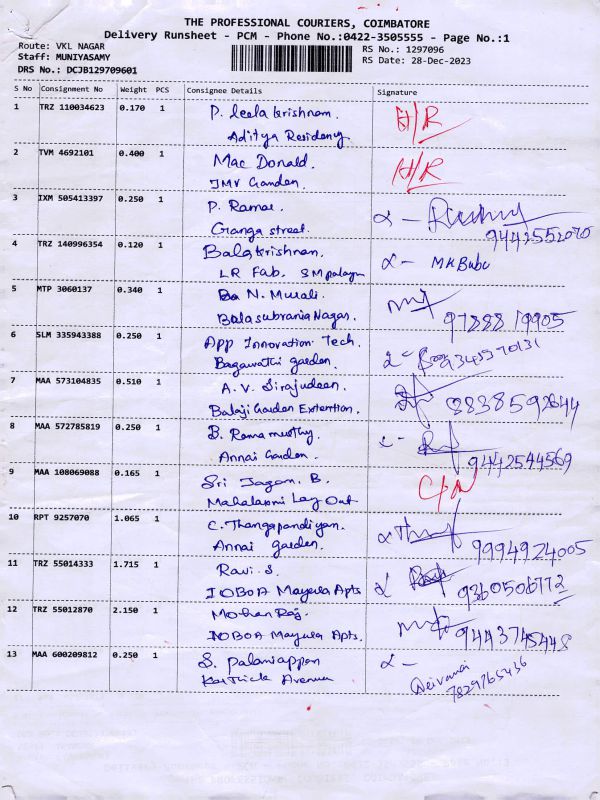 THE PROFESSIONAL COURIERS, COIMBATORE
Delivery Runsheet - PCM - Phone No.:0422-3505555 - Page No.:1
Route: VKL NAGAR
Staff: MUNIYASAMY
DRS No.: DCJB129709601
RS No.: 1297096
RS Date: 28-Dec-2023
S No Consignment No Weight PCS Consignee Details Signature
1 TRZ 110034623 0.170 1 P. Leela krishnan.
Aditya Residency
2 TVM 4692101 0.400 1 Mac Donald.
JMV Garden.
3 IXM 505413397 0.250 1 P. Ramar
Ganga street.
9443552070
4 TRZ 140996354 0.120 1 Balakrishnan.
LR Fab. SM palayam
MK Babu
5 MTP 3060137 0.340 1 N. Murali.
Balasubrania Nagar.
9788819905
6 SLM 335943388 0.250 1 App Innovation Tech.
Bagawathi garden.
9345570131
7 MAA 573104835 0.510 1 A.V. Sirajudeen.
Balaji Garden Extention.
8838592644
8 MAA 572785819 0.250 1 B. Ramamurthy.
Annai Garden.
9442544569
9 MAA 108069088 0.165 1 Sri Jagan. B.
Mahalaxmi Lay Out
10 RPT 9257070 1.065 1 C. Thangapandiyan.
Annai garden.
9994924005
11 TRZ 55014333 1.715 1 Ravi. S.
IOBOA Mayura Apts
9360506772
12 TRZ 55012870 2.150 1 Mohan Raj.
IOBOA Mayura Apts.
9443745448
13 MAA 600209812 0.250 1 S. Palaniappan
Karthick Avenue
Deivanai
7829765436